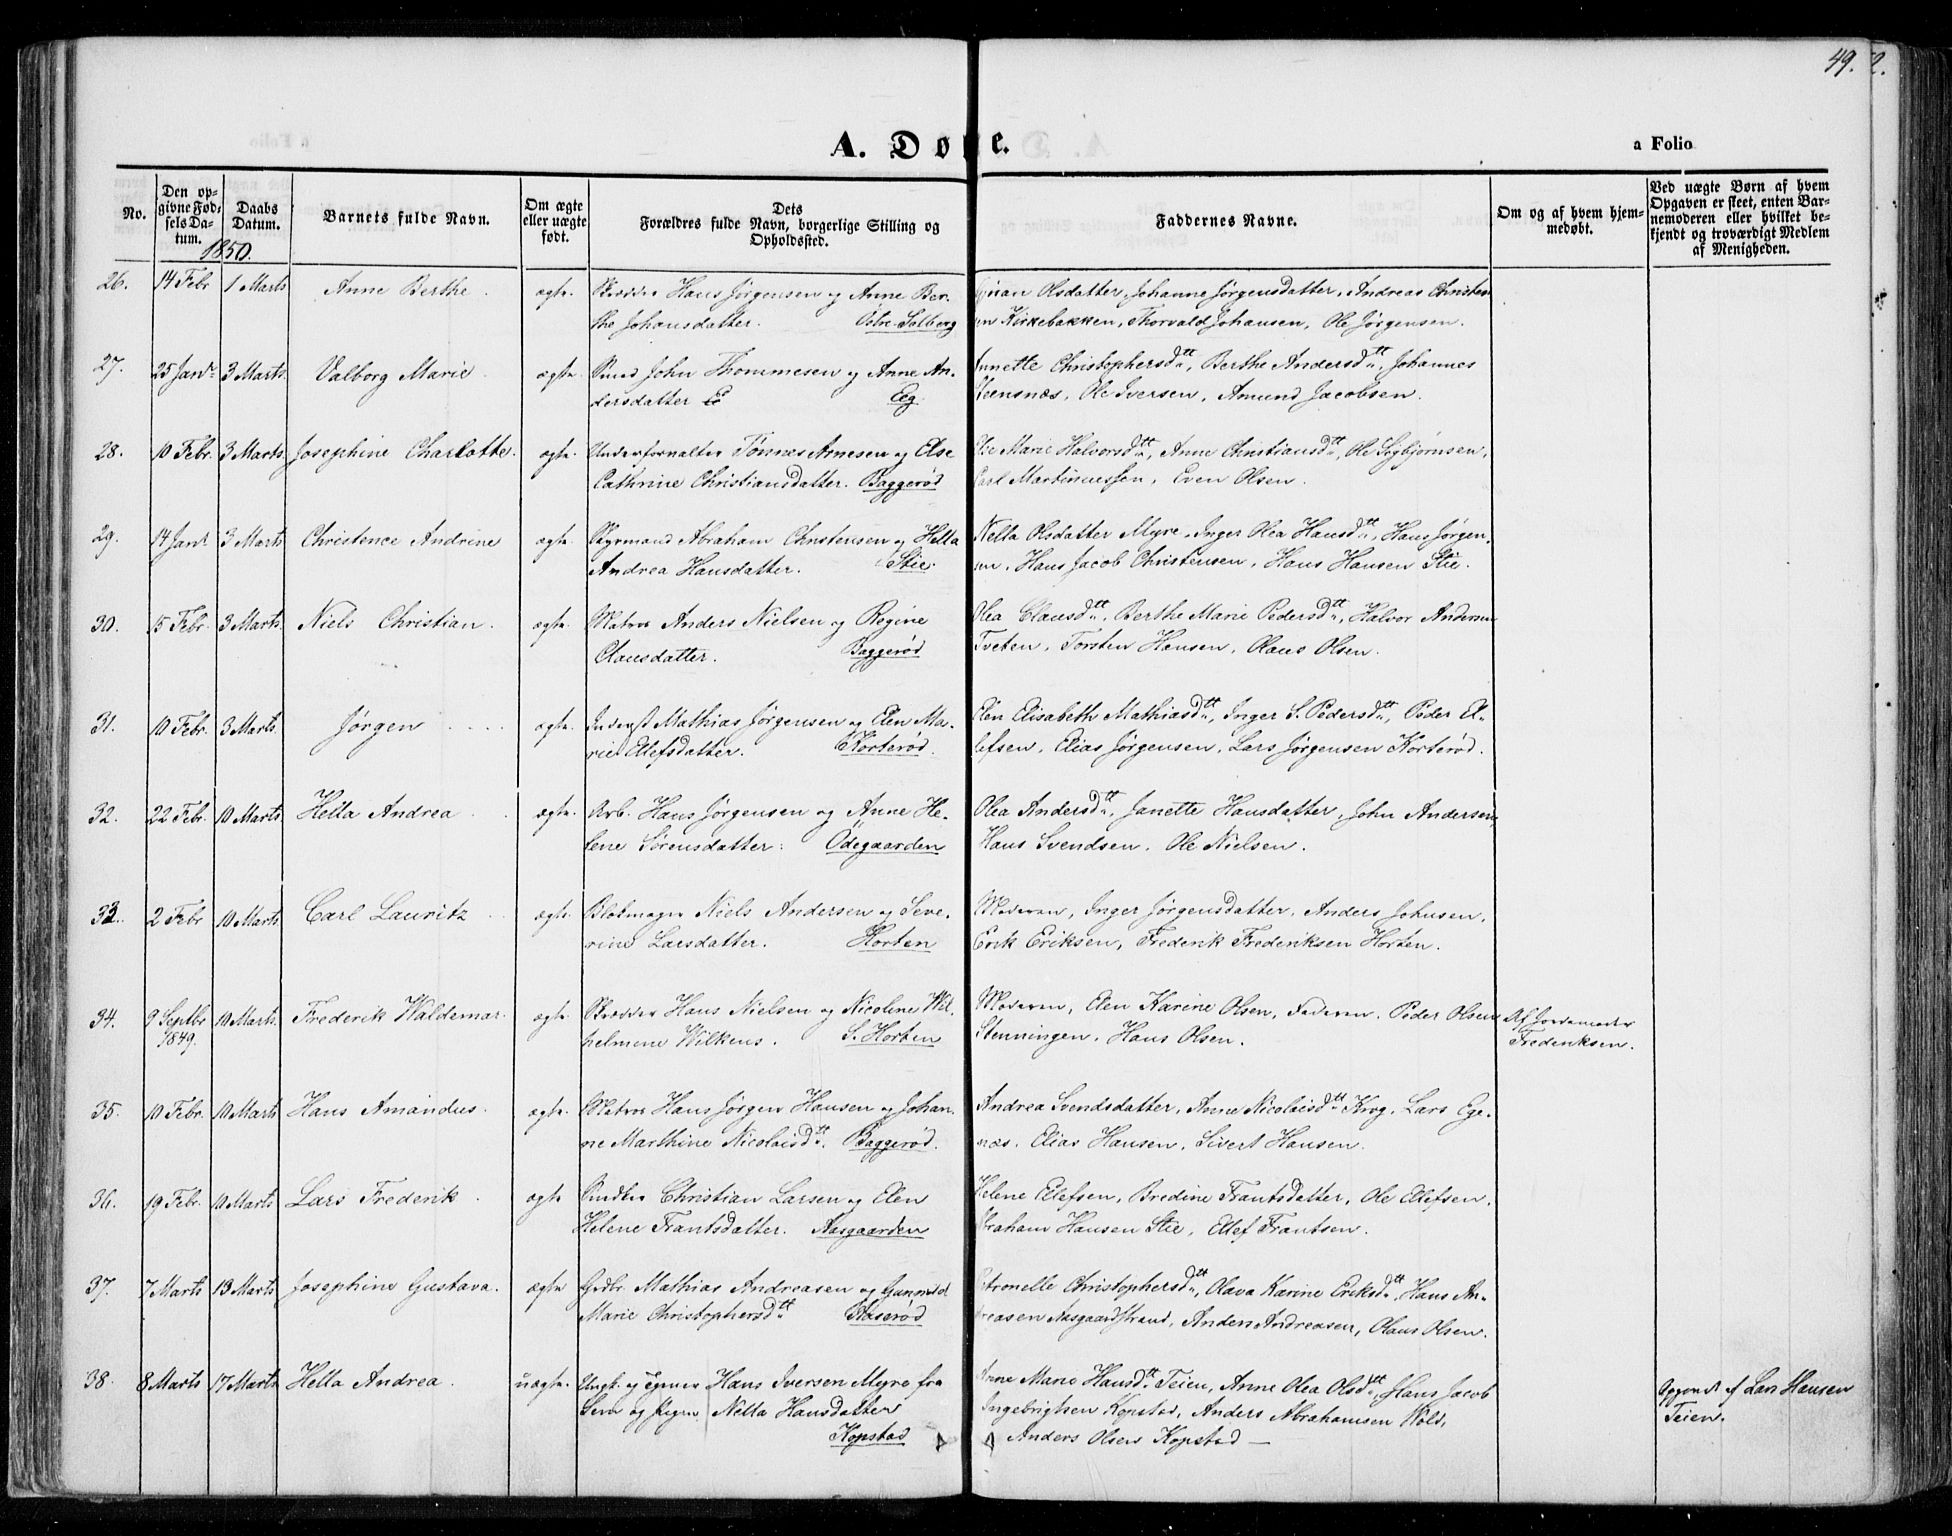 49. 2.
A. Døbte.
a Folio
No.
Den opgivne Fødsels Datum.
Daabs Datum.
Barnets fulde Navn.
Om ægte eller uægte født.
Dets Forældres fulde Navn, borgerlige Stilling og Opholdssted.
Faddernes Navne.
Om og af hvem hjemmedøbt.
Ved uægte Børn af hvem Opgaven er skeet, enten Barnemoderen eller hvilket bekjendt og troværdigt Medlem af Menigheden.
1850.
26. 14 Febr 1 Marts Anne Berthe. ægte. Skrædder Hans Jørgensen og Anne Ber- Olsdatter, Johanne Jørgensdatter, Andreas Christen
the Johansdatter. Østre-Solberg Kirkebakken, Thorvald Johansen, Ole Jørgensen.
27. 25 Janr 3 Marts. Valborg Marie. ægte. Smed John Thommesen og Anne An- Annette Christophersdtt, Berthe Andersdtt, Johannes
dersdatter Eeg. Steensnæs, Ole Iversen, Amund Jacobsen.
28. 10 Febr. 3 Marts. Josephine Charlotte. ægte. Underforvalter Tønnes Arnesen og Else Marie Halvorsdtt, Anne Christiansdtt, Ole Sigbjørnsen,
Cathrine Christiansdatter. Baggerød Carl Martinuessen, Even Olsen.
29. 14 Janr 3 Marts Christence Andrine ægte. Styrmand Abraham Christensen og Hella Nella Olsdatter Myre, Inger Olea Hansdtt, Hans Jørgen-
Andrea Hansdatter. Stie. Hans Jacob Christensen, Hans Hansen Stie.
30. 15 Febr. 3 Marts. Niels Christian. ægte. Matros Anders Nielsen og Regine Olea Clausdtt, Berthe Marie Pedersdtt, Halvor Andersen
Clausdatter. Baggerød Tveten, Torsten Hansen, Olaus Olsen.
31. 10 Febr. 3 Marts. Jørgen ægte. Inderst Mathias Jørgensen og Elen Ma- Elen Elisabeth Mathiasdtt, Inger S. Pedersdtt, Peder El-
rie Ellefsdatter. Korterød. lefsen, Elias Jørgensen, Lars Jørgensen Korterød.
32. 22 Febr. 10 Marts. Hella Andrea. ægte. Arb. Hans Jørgensen og Anne He- Olea Andersdtt, Janette Hansdatter, John Andersen,
lene Sørensdatter. Ødegaarden Hans Svendsen, Ole Nielsen.
33. 2 Febr 10 Marts. Carl Lauritz ægte. Blokmager Niels Andersen og Seve- Moderen, Inger Jørgensdatter, Anders Johnsen,
rine Larsdatter. Horten Erik Eriksen, Frederik Frederiksen Horten.
34. 9 Septbr 1849. 10 Marts. Frederik Waldemar. ægte. Skrædder Hans Nielsen og Nicoline Wil- Moderen, Elen Karine Olsen, Faderen, Peder Olsen Af Jordemoder
helmine Wilkens. S. Horten Stenningen, Hans Olsen. Frederiksen.
35. 10 Febr. 10 Marts Hans Amandus. ægte. Matros Hans Jørgen Hansen og Johan- Andrea Svendsdatter, Anne Nicolaisdtt Krog, Lars Ege-
ne Marthine Nicolaisdtt. Baggerød. næs, Elias Hansen, Sivert Hansen.
36. 19 Febr. 10 Marts Lars Frederik. ægte Snedker Christian Larsen og Elen Helene Ellefsen, Bredine Frantsdatter, Ole Ellefsen,
Helene Frantsdatter. Aasgaarden Abraham Hansen Stie, Ellef Frantsen.
37. 7 Marts 13 Marts Josephine Gustava. ægte Grdbr. Mathias Andreasen og Gunnild Petronelle Christophersdtt, Olava Karine Eriksdtt, Hans An-
Marie Christophersdtt Aaserød dreasen Aasgaardstrand, Anders Andreasen, Olaus Olsen.
38. 8 Marts 17 Marts Hella Andrea. uægte. Ungk. og Hans Iversen Myre fra Anne Marie Hansdtt Teien, Anne Olea Olsdtt, Hans Jacob Opgivet af Lars Hansen
og Pigen Nella Hansdatter Ingebrigtsen Kopstad, Anders Abrahamsen Wold, Teien.
Kopstad Anders Olsen Kopstad